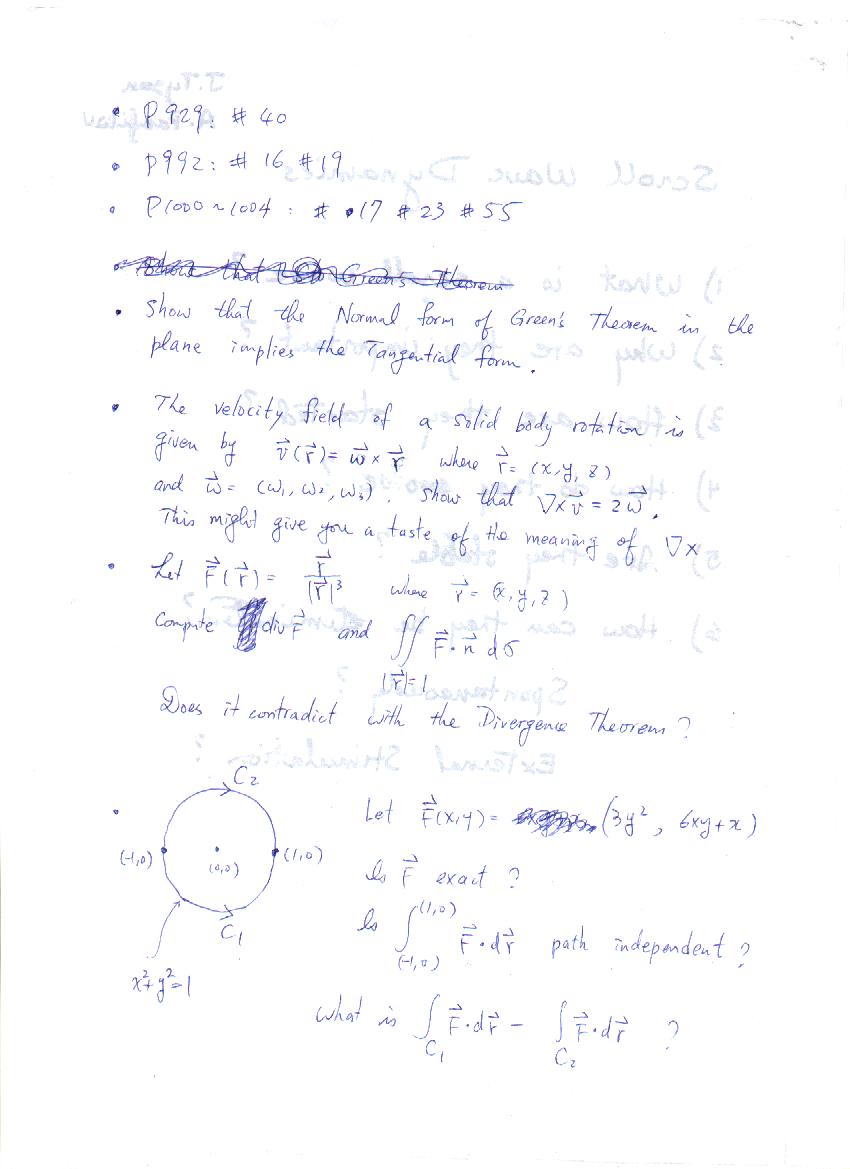 • P929: # 40
• P992: # 16 # 19
• P1000 ~ 1004 : # 17 # 23 # 55
• Show that the Normal form of Green's Theorem in the
plane implies the Tangential form.
• The velocity field of a solid body rotation is
given by v⃗(r⃗) = ω⃗ × r⃗ where r⃗ = (x, y, z)
and ω⃗ = (ω₁, ω₂, ω₃). Show that ∇×v⃗ = 2ω⃗.
This might give you a taste of the meaning of ∇×
• Let F⃗(r⃗) = r⃗/|r⃗|³ where r⃗ = (x, y, z)
Compute div F⃗ and ∬ F⃗·n⃗ dσ
|r⃗|=1
Does it contradict with the Divergence Theorem?
C₂
• Let F⃗(x,y) = (3y², 6xy+x)
(-1,0) (0,0) (1,0)
Is F⃗ exact?
Is ∫_(-1,0)^(1,0) F⃗·dr⃗ path independent?
C₁
x²+y²=1
What is ∫_C₁ F⃗·dr⃗ - ∫_C₂ F⃗·dr⃗ ?